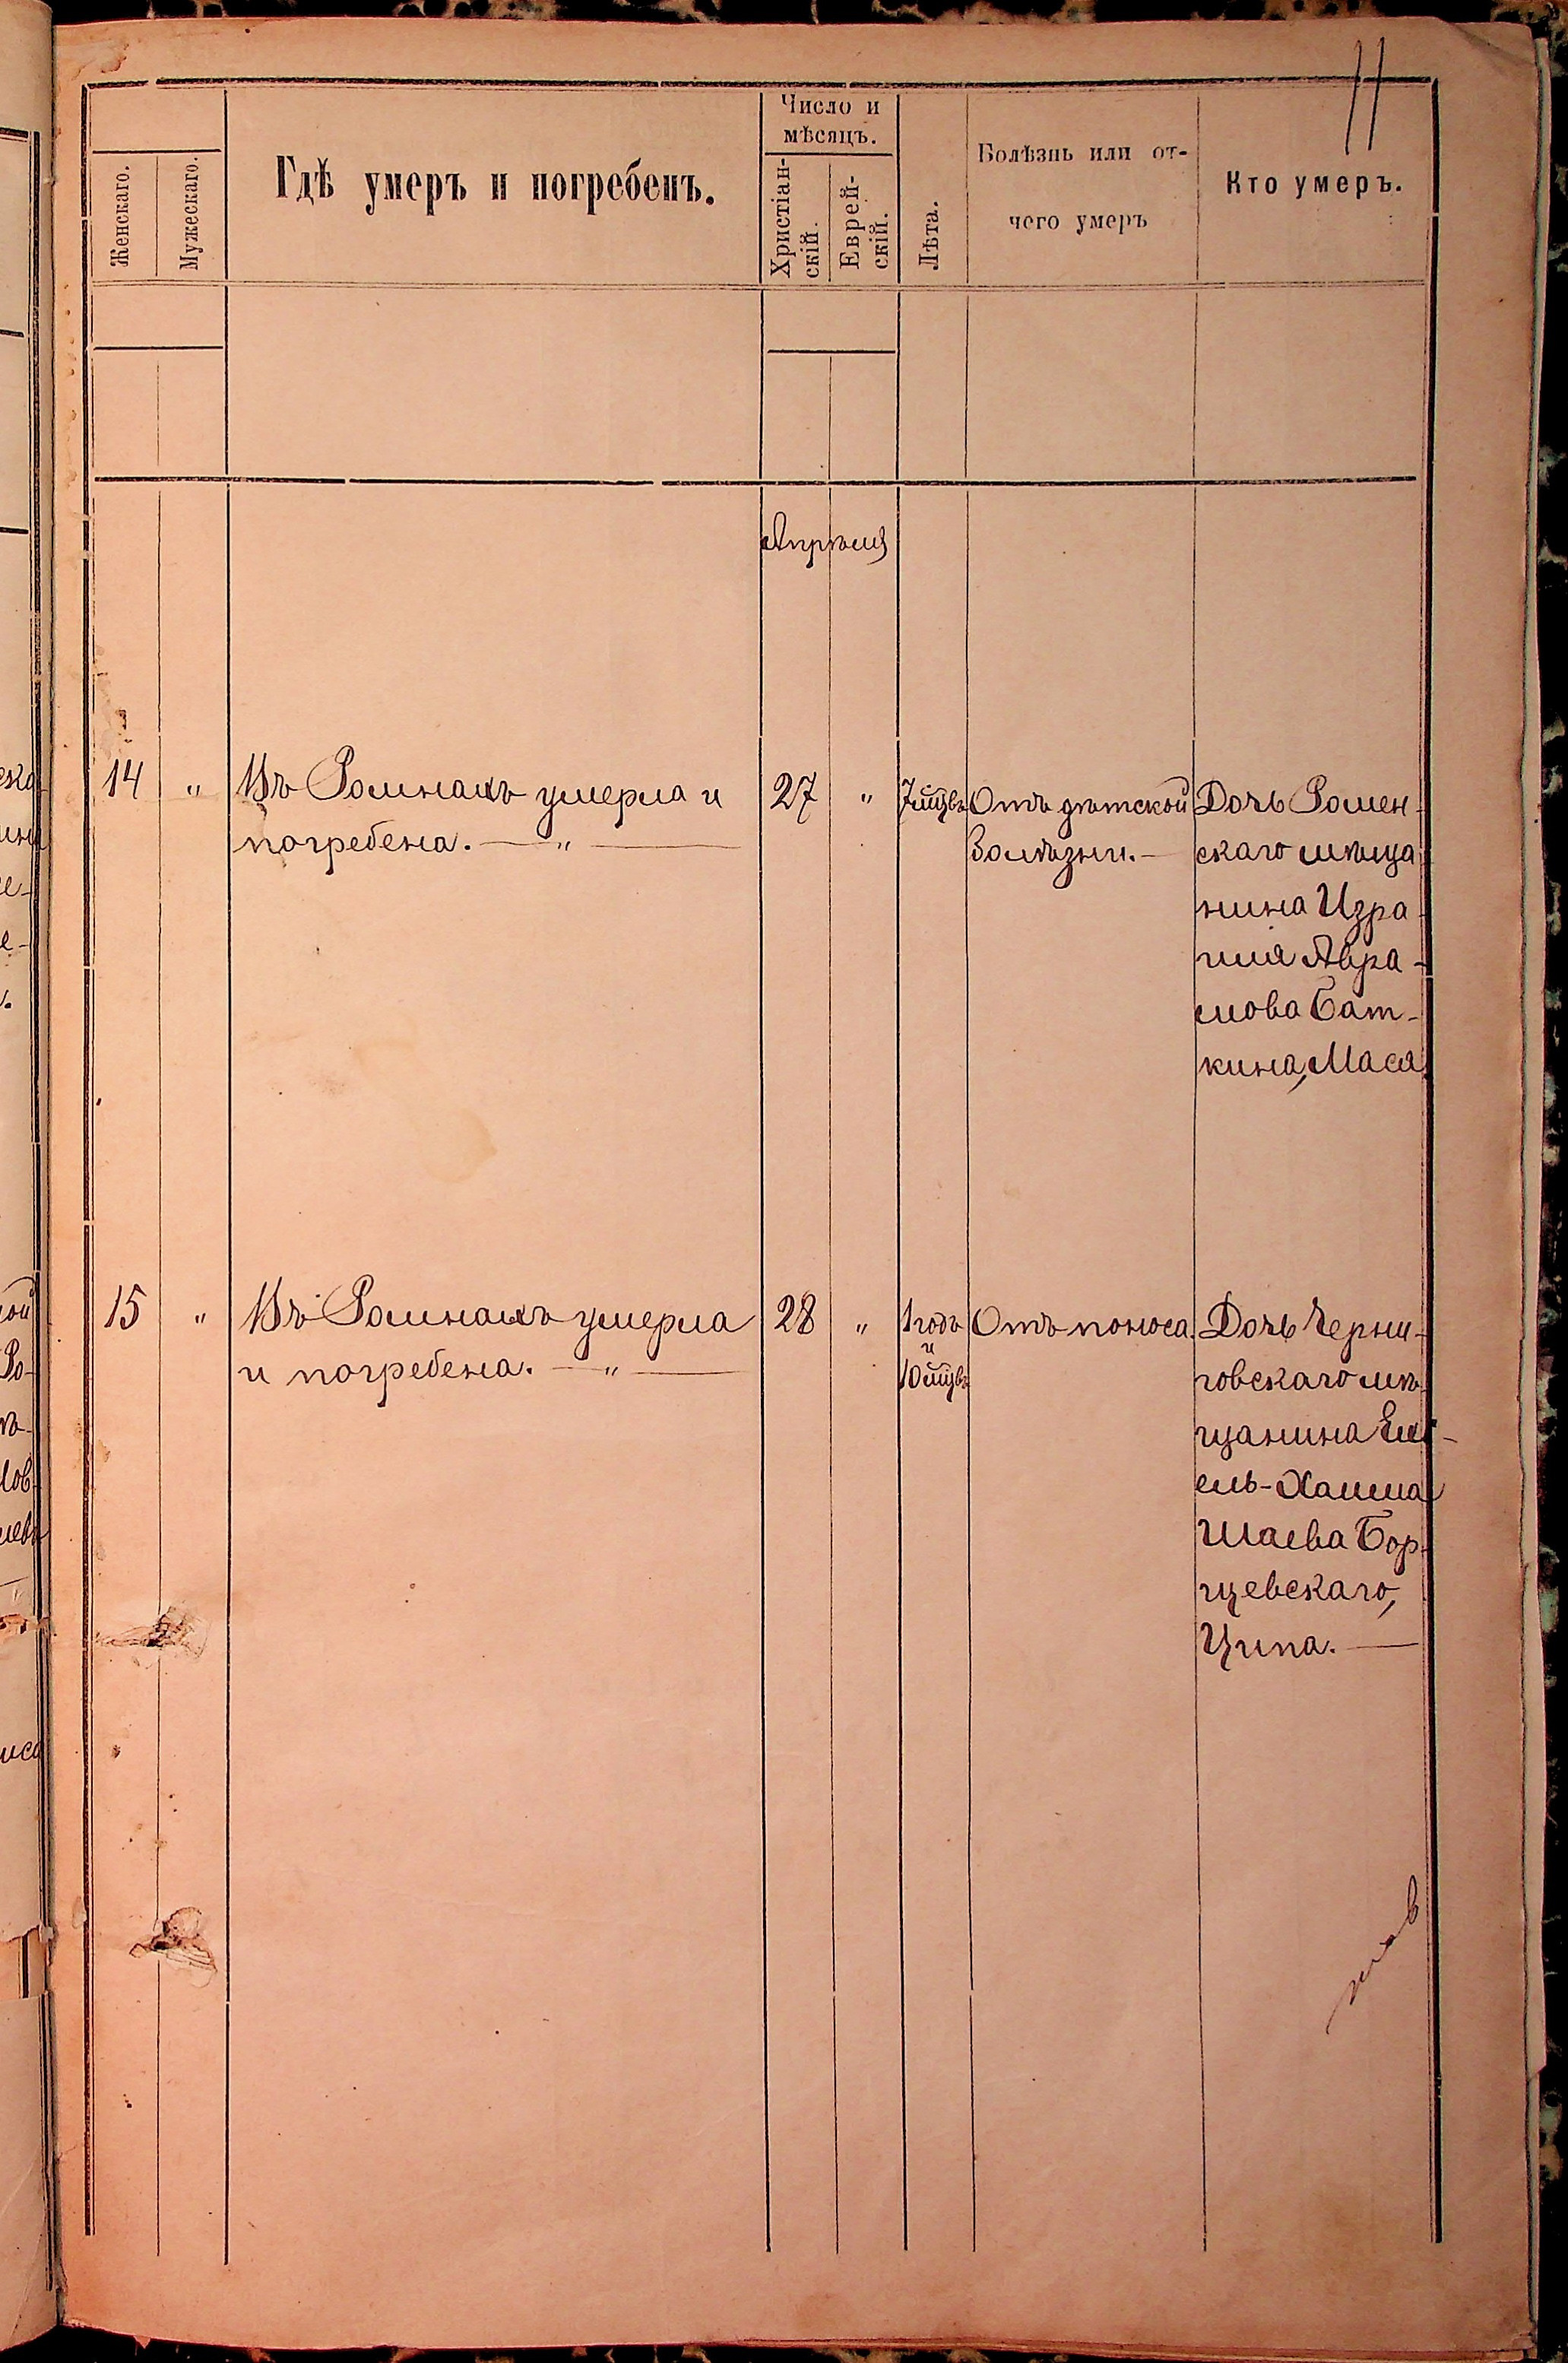 11
Женскаго.
Мужескаго.
Гдѣ умеръ и погребенъ.
Число и
мѣсяцъ.
Христіан-
скій.
Еврей-
скій.
Лѣта.
Болѣзнь или от-
чего умеръ
Кто умеръ.
Апрѣля
14 " Въ Ромнахъ умерла и
погребена. — " —
27 " 7 мцвъ
Отъ дѣтской
болѣзни. —
Дочь Ромен-
скаго мѣща
нина Изра-
иля Авра-
мова Бат-
кина, Мася
15 " Въ Ромнахъ умерла
и погребена. — " —
28 " 1 годъ
и
10 мцвъ
Отъ поноса.
Дочь Черни-
говскаго мѣ
щанина Ехі-
ель-Хаима
Шаева Бор-
щевскаго,
Ципа. —